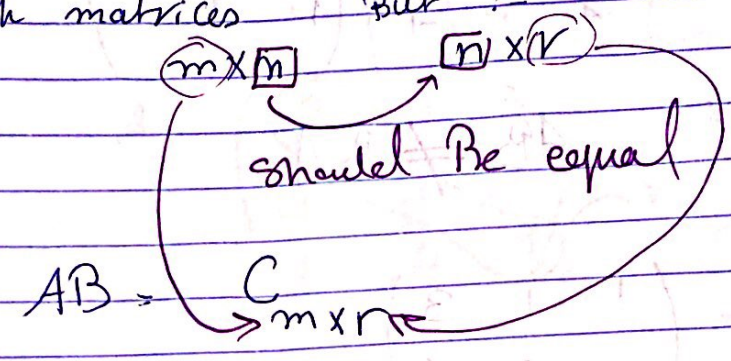 matrices But
m × n n × r
should Be equal
AB = C
m × r